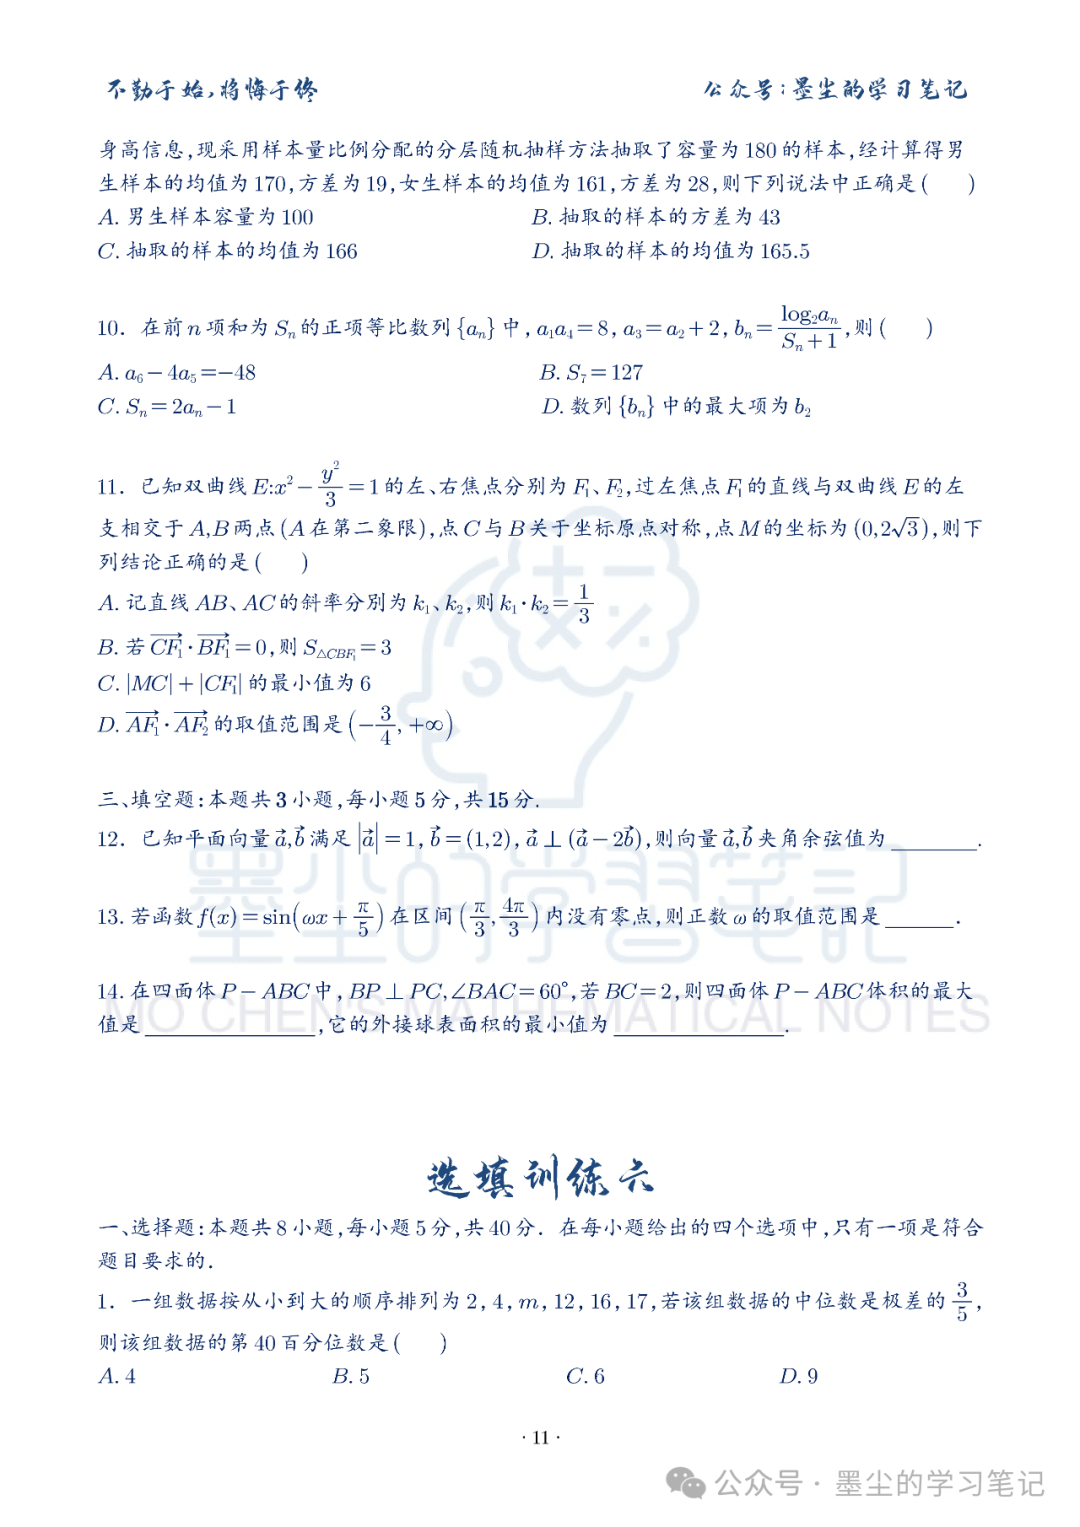 不勤于始,将悔于终
公众号:墨尘的学习笔记
身高信息,现采用样本量比例分配的分层随机抽样方法抽取了容量为 180 的样本,经计算得男
生样本的均值为 170,方差为 19,女生样本的均值为 161,方差为 28,则下列说法中正确是 (   )
A. 男生样本容量为 100
B. 抽取的样本的方差为 43
C. 抽取的样本的均值为 166
D. 抽取的样本的均值为 165.5
10. 在前 n 项和为 Sₙ 的正项等比数列 {aₙ} 中, a₁a₄=8, a₃=a₂+2, bₙ= log₂aₙ/(Sₙ+1) ,则 (   )
A. a₆-4a₅=-48
B. S₇=127
C. Sₙ=2aₙ-1
D. 数列 {bₙ} 中的最大项为 b₂
11. 已知双曲线 E:x²-y²/3=1 的左、右焦点分别为 F₁、F₂,过左焦点 F₁ 的直线与双曲线 E 的左
支相交于 A,B 两点 (A 在第二象限),点 C 与 B 关于坐标原点对称,点 M 的坐标为 (0,2√3),则下
列结论正确的是 (   )
A. 记直线 AB、AC 的斜率分别为 k₁、k₂,则 k₁·k₂=1/3
B. 若 \overrightarrow{CF₁}·\overrightarrow{BF₁}=0,则 S△CBF₁=3
C. |MC|+|CF₁| 的最小值为 6
D. \overrightarrow{AF₁}·\overrightarrow{AF₂} 的取值范围是 (-3/4, +∞)
三、填空题:本题共 3 小题,每小题 5 分,共 15 分.
12. 已知平面向量 a⃗,b⃗ 满足 |a⃗|=1, b⃗=(1,2), a⃗⊥(a⃗-2b⃗),则向量 a⃗,b⃗ 夹角余弦值为 ________.
13. 若函数 f(x)=sin(ωx+π/5) 在区间 (π/3, 4π/3) 内没有零点,则正数 ω 的取值范围是 ______.
14. 在四面体 P-ABC 中, BP⊥PC,∠BAC=60°,若 BC=2,则四面体 P-ABC 体积的最大
值是 ______________,它的外接球表面积的最小值为 ______________.
墨尘的学习笔记
MO CHEN'S MATHEMATICAL NOTES
选填训练六
一、选择题:本题共 8 小题,每小题 5 分,共 40 分. 在每小题给出的四个选项中,只有一项是符合
题目要求的.
1. 一组数据按从小到大的顺序排列为 2, 4, m, 12, 16, 17,若该组数据的中位数是极差的 3/5,
则该组数据的第 40 百分位数是 (   )
A. 4
B. 5
C. 6
D. 9
· 11 ·
公众号 · 墨尘的学习笔记